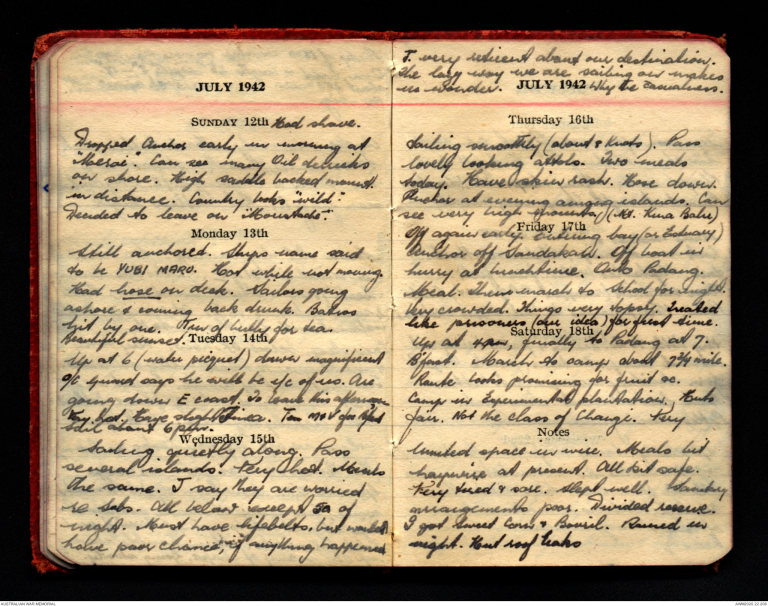 JULY 1942
SUNDAY 12th Had shave.
Dropped Anchor early in morning at
"Meeroe". Can see many Oil derricks
on shore. High saddle backed mount.
in distance. Country looks "wild".
Decided to leave on "Moustache".
Monday 13th
Still anchored. Ships name said
to be YUBI MARO. Hot while not moving
Had hose on deck. Sailors going
ashore & coming back drunk.
hit by one. Tin of bully for tea.
Beautiful sunset.
Tuesday 14th
Up at 6 (water picquet) dawn magnificent
O/C guard says he will be i/c of us. Are
going down E coast. To leave this afternoon
Very hot. Have slight Tinea. for
Sail about 6 pm.
Wednesday 15th
Sailing quietly along. Pass
several islands. Very hot. Meals
the same. I say they are worried
re Subs. All below except 50 at
night. Must have lifebelts, but would
have poor chance, if anything happened
J. very reticent about our destination.
The lazy way we are sailing on makes
us wonder. Why the casualness.
JULY 1942
Thursday 16th
Sailing smoothly (about 8 Knots). Pass
lovely looking atolls. Two meals
today. Have skin rash. Hose down.
Anchor at evening among islands. Can
see very high mount(s) (Mt. Kina Balu)
Friday 17th
Off again early. Entering bay (or Estuary)
Anchor off Sandakan. Off boat in
hurry at lunchtime. Onto Padang.
Meal. Then march to School for night.
Very crowded. Things very topsy. Treated
like prisoners (our idea) for first time.
Saturday 18th
Up at 4 am, finally to Padang at 7.
B'fast. March to camp about 7¾ mile.
Route looks promising for fruit etc.
Camp in Experimental plantation. Huts
fair. Not the class of Changi. Very
Notes
limited space in wire. Meals bit
haywire at present. All kit safe.
Very tired & sore. Slept well. Sanitary
arrangements poor. Divided reserve.
I got Sweet Corn & Bovril. Rained in
night. Hut roof leaks
AUSTRALIAN WAR MEMORIAL